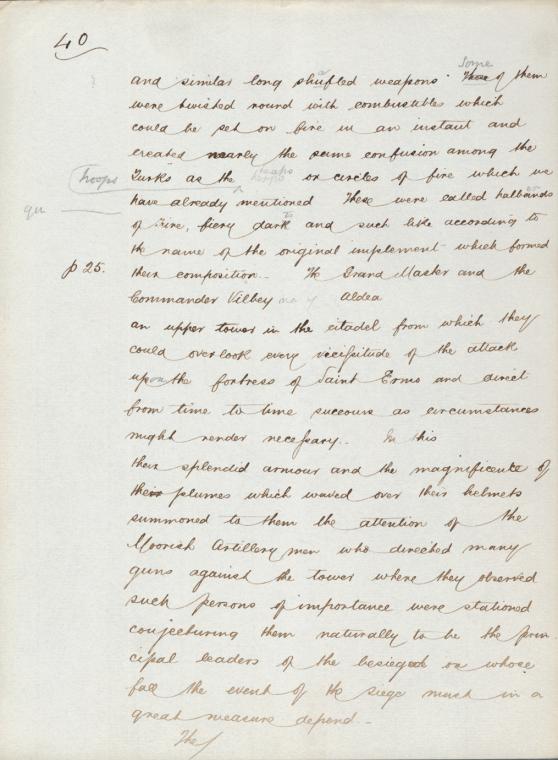 40
and similar long shafted weapons. Some of them
were twisted round with combustibles which
could be set on fire in an instant and
created nearly the same confusion among the
Hoops
Turks as the hoops or circles of fire which we
qu
have already mentioned These were called halberds
of Fire, fiery darts and such like according to
the name of the original implement which formed
p 25.
their composition. The Grand Master and the
Commander Vilbey Aldea
an upper tower in the citadel from which they
could overlook every vicissitude of the attack
upon the fortress of Saint Ermo and direct
from time to time succours as circumstances
might render necessary. In this
their splendid armour and the magnificence of
their plumes which waved over their helmets
summoned to them the attention of the
Moorish Artillery men who directed many
guns against the tower where they observed
such persons of importance were stationed
conjecturing them naturally to be the prin
cipal leaders of the besieged on whose
fall the event of the siege must in a
great measure depend.
The